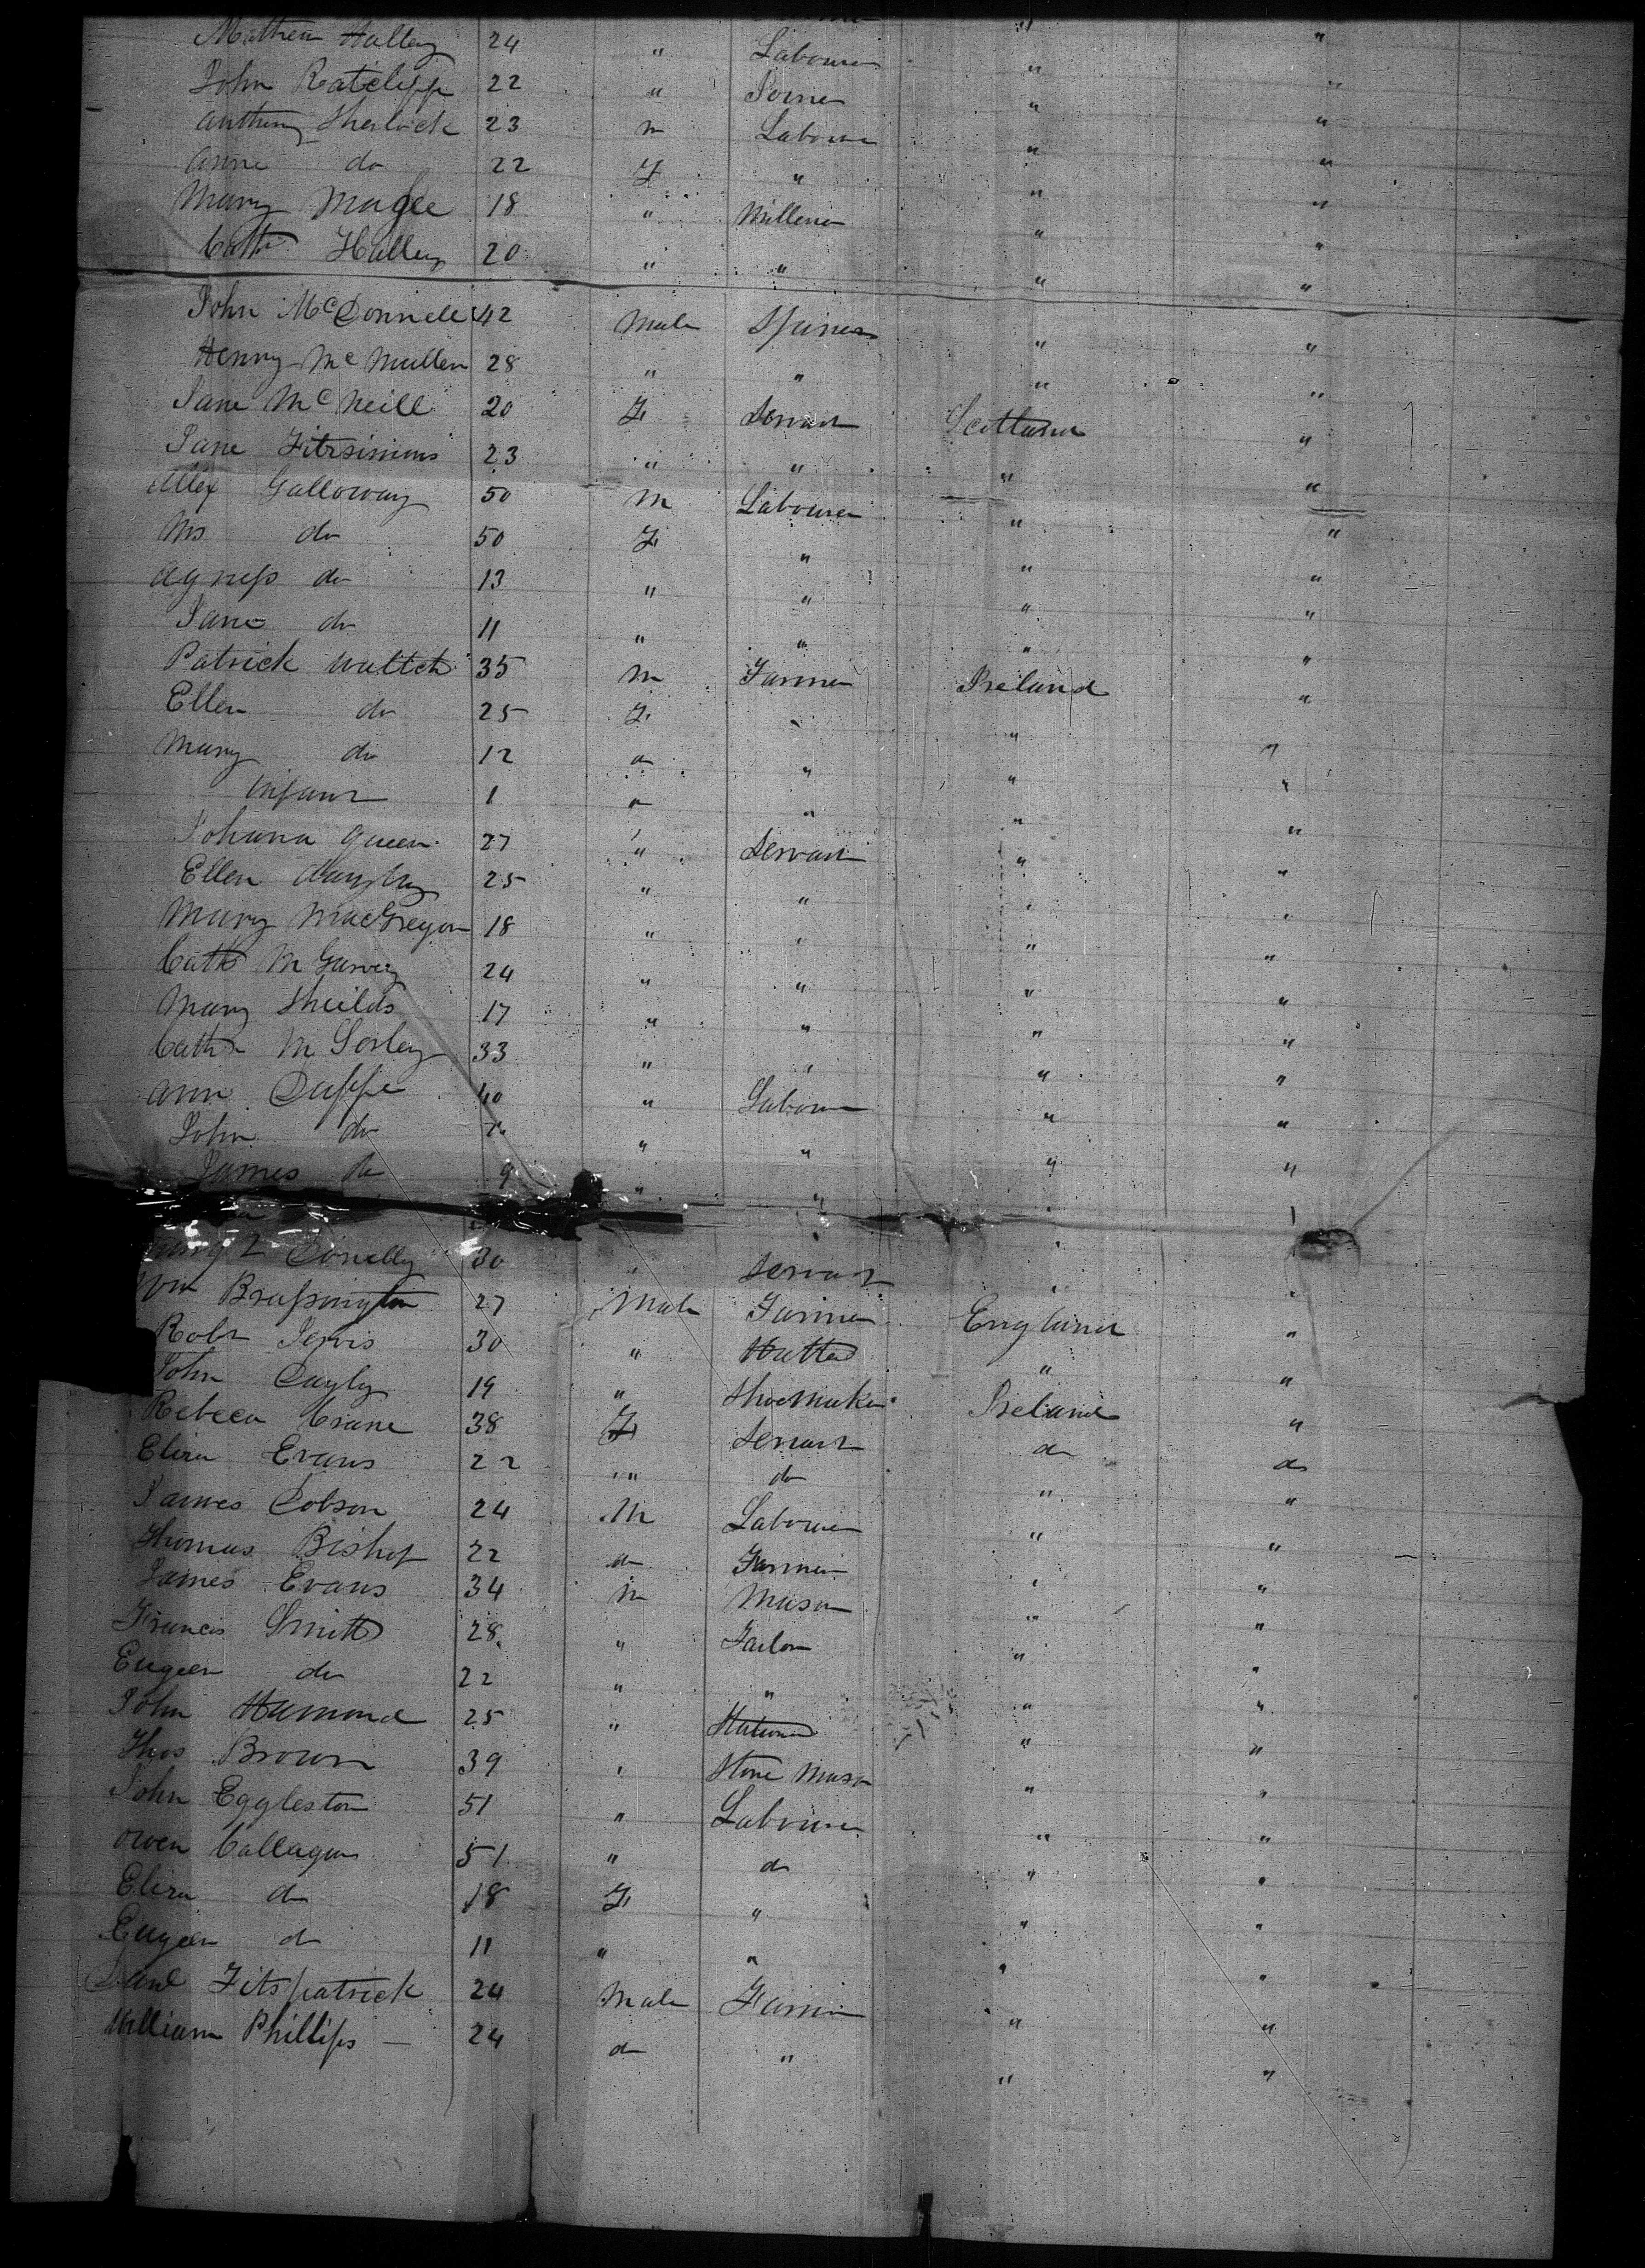 Mathew Halley 24 " Labourer " "
John Ratcliffe 22 " Joiner " "
Anthony Sherlock 23 m Labourer " "
Anne do 22 F " " "
Mary Magee 18 " Milliner " "
Cath Halley 20 " " " "
John McDonnell 42 Male Spiner " "
Henry McMullen 28 " " " "
Jane McNeill 20 F Servant Scotland "
Jane Fitzsimins 23 " " " "
Alex Galloway 50 M Labourer " "
Ms do 50 F " " "
Agness do 13 " " " "
Jane do 11 " " " "
Patrick 35 m Farmer Ireland "
Ellen do 25 F " " "
Mary do 12 " " " "
Infant 1 " " " "
Johana Queen 27 " Servant " "
Ellen 25 " " " "
Mary MacGregor 18 " " " "
Cath McGarvey 24 " " " "
Mary Sheilds 17 " " " "
Cath McSorley 33 " " " "
Ann Duffe 40 " Labourer " "
John do " " " "
James do 9 " " " "
Donelly 30 " Servant " "
Wm Brassington 27 Male Farmer England "
Robt Jervis 30 " Hatter " "
John Cayly 19 " Shoemaker Ireland "
Rebeca Crane 38 F Servant do do
Eliza Evans 22 " do " "
James Dobson 24 M Labourer " "
Thomas Bishop 22 do Farmer " "
James Evans 34 m Mason " "
Francis Smith 28 " Tailor " "
Eugeen do 22 " " " "
John Hamond 25 " Stationer " "
Thos Brown 39 " Stone Mason " "
John Eggleston 51 " Labourer " "
Owen Callagan 51 " do " "
Eliza do 18 F " " "
Eugeen do 11 " " " "
Fitspatrick 24 Male Farmer " "
William Phillips — 24 do " " "